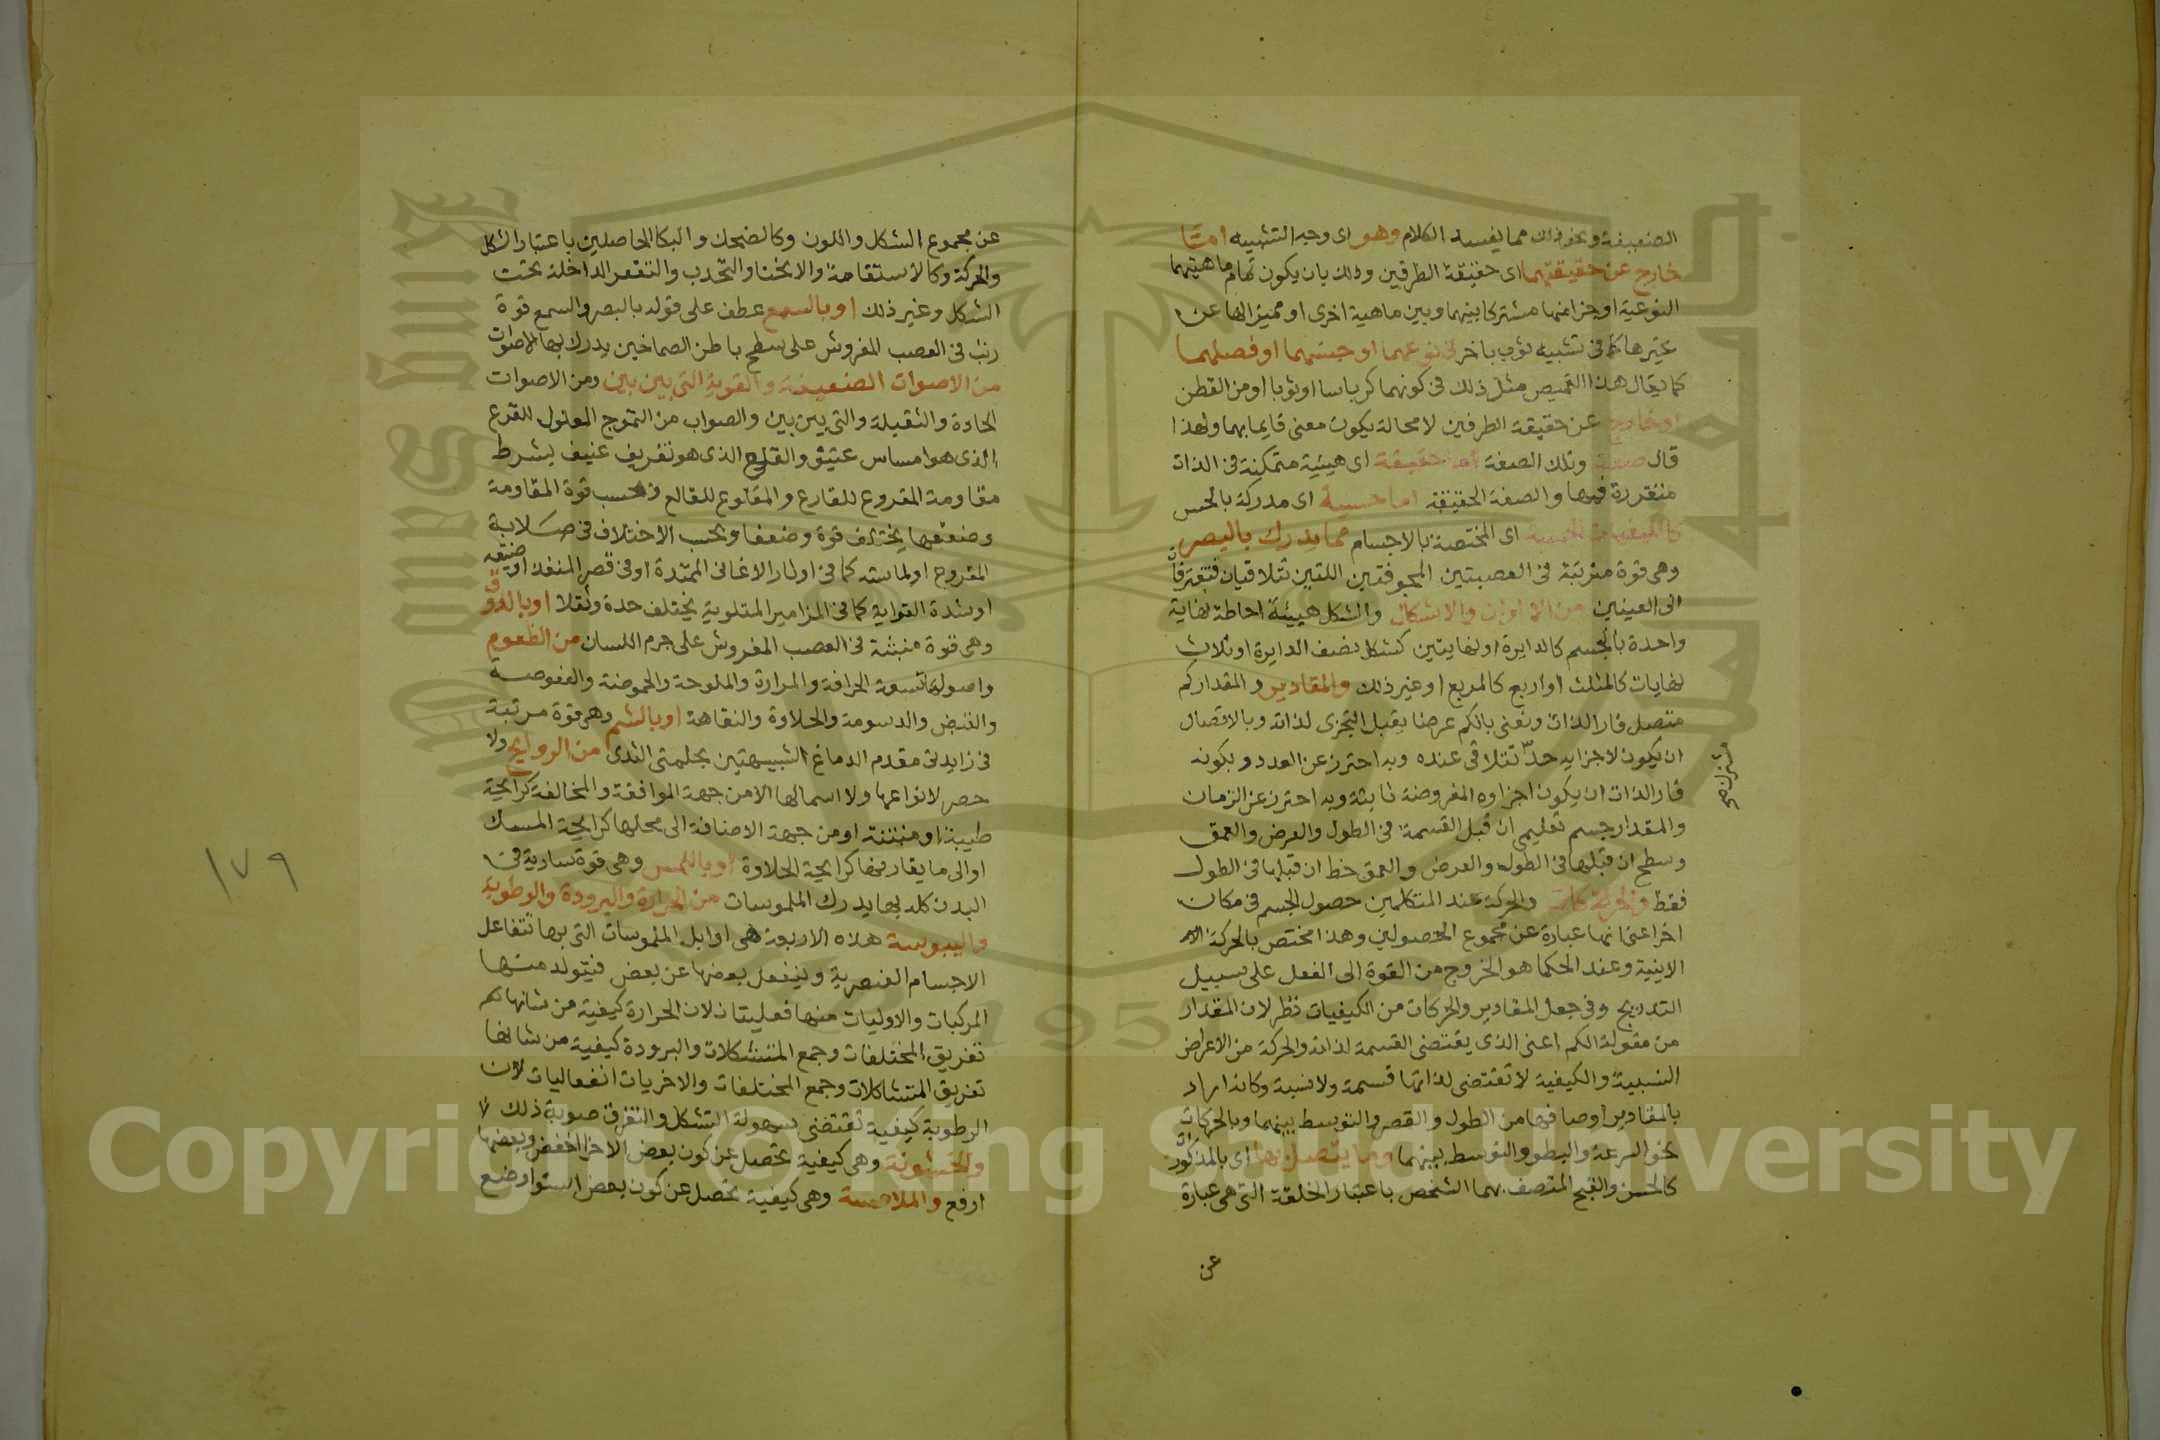 الضعيفة ونحو ذلك مما يفسد الكلام وهو اى وجه التشبيه اما
خارج عن حقيقتهما اى حقيقة الطرفين وذلك بان يكون تمام ماهيتهما
النوعية او جزا منها مشتركا بينهما وبين ماهية اخرى او مميزا لها عن
غيرها كما فى تشبيه ثوب باخر فى نوعهما او جنسهما او فصلهما
كما يقال هذا القميص مثل ذلك فى كونهما كرباسا او ثوبا او من القطن
او خارج عن حقيقة الطرفين لا محالة يكون معنى قايما بهما ولهذا
قال صفة وتلك الصفة اما حقيقة اى هيئية متمكنة فى الذات
متقررة فيها والصفة الحقيقة اما حسية اى مدركة بالحس
كالكيفيات الجسمية اى المختصة بالاجسام مما يدرك بالبصر
وهى قوة مترتبة فى العصبتين المجوفتين اللتين تتلاقيان فتفترقان
الى العينين من الالوان والاشكال والشكل هيئة احاطة نهاية
واحدة بالجسم كالدايرة او نهايتين كشكل نصف الدايرة او ثلاث
نهايات كالمثلث او اربع كالمربع او غير ذلك والمقادير والمقدار كم
متصل قار الذات ونعنى بالكم عرضا يقبل التجزى لذاته وبالاتصال
ان يكون لاجزايه حدّ تتلاقى عنده وبه احترز عن العدد وبكونه
مشترك صح
قار الذات ان يكون اجزاوه المفروضة ثابتة وبه احترز عن الزمان
والمقدار جسم تعليمى ان قبل القسمة فى الطول والعرض والعمق
وسطح ان قبلها فى الطول والعرض والعمق خط ان قبلها فى الطول
فقط والحركات والحركة عند المتكلمين حصول الجسم فى مكان
اخر اعنى انها عبارة عن مجموع الحصولين وهذا مختص بالحركة
الاينية وعند الحكما هو الخروج من القوة الى الفعل على سبيل
التدريج وفى جعل المقادير والحركات من الكيفيات نظر لان المقدار
من مقولة الكم اعنى الذى يقتضى القسمة لذاته والحركة من الاعراض
النسبية والكيفية لا تقتضى لذاتها قسمة ولا نسبة وكانه اراد
بالمقادير اوصافها من الطول والقصر والتوسط بينهما وبالحركات
نحو السرعة والبطو والتوسط بينهما وما يتصل بها اى بالمذكورات
كالحسن والقبح المتصف بهما الشخص باعتبار الخلقة التى هى عبارة
عن
عن مجموع الشكل واللون وكالضحك والبكا الحاصلين باعتبار الشكل
والحركة وكالاستقامة والانحنا والتحدب والتقعر الداخلة تحت
الشكل وغير ذلك او بالسمع عطف على قوله بالبصر والسمع قوة
رتبت فى العصب المفروش على سطح باطن الصماخين يدرك بها الاصوات
من الاصوات الضعيفة والقوية التى بين بين ومن الاصوات
الحادة والثقيلة والتى بين بين والصواب من التموج المعلول للقرع
الذى هو امساس عنيف والقلع الذى هو تفريق عنيف بشرط
مقاومة المقروع للقارع والمقلوع للقالع وبحسب قوة المقاومة
وضعفها يختلف قوة وضعفا وبحسب الاختلاف فى صلابة
المقروع او ملاسته كما فى اوتار الاغانى الممتدة او فى قصر المنفذ او ضيقه
او شدة التوايه كما فى المزامير الملتوية يختلف حدة وثقلا او بالذوق
وهى قوة منبثة فى العصب المفروش على جرم اللسان من الطعوم
واصولها تسعة الحرافة والمرارة والملوحة والحموضة والعفوصة
والقبض والدسومة والحلاوة والتفاهة او بالشم وهى قوة مرتبة
فى زايدتى مقدم الدماغ الشبيهتين بحلمتى الثدى من الروايح ولا
حصر لانواعها ولا اسما لها الا من جهة الموافقة والمخالفة كرايحة
طيبة او منتنة او من جهة الاضافة الى محلها كرايحة المسك
او الى ما يقارنها كرايحة الحلاوة او باللمس وهى قوة سارية فى
البدن كله بها يدرك الملموسات من الحرارة والبرودة والرطوبة
واليبوسة هذه الاربعة هى اوايل الملموسات التى بها تتفاعل
الاجسام العنصرية وينفعل بعضها عن بعض فيتولد منها
المركبات والاوليات منها فعليتان لان الحرارة كيفية من شانها
تفريق المختلفات وجمع المتشكلات والبرودة كيفية من شانها
تفريق المتشاكلات وجمع المختلفات والاخريات انفعاليات لان
الرطوبة كيفية تقتضى سهولة التشكل والتفرق صوبة ذلك
والخشونة وهى كيفية تحصل عن كون بعض الاجزا اخفض وبعضها
ارفع والملاسة وهى كيفية تحصل عن كون بعض استوا وضع
١٧٩
Copyright © King Saud University
1957